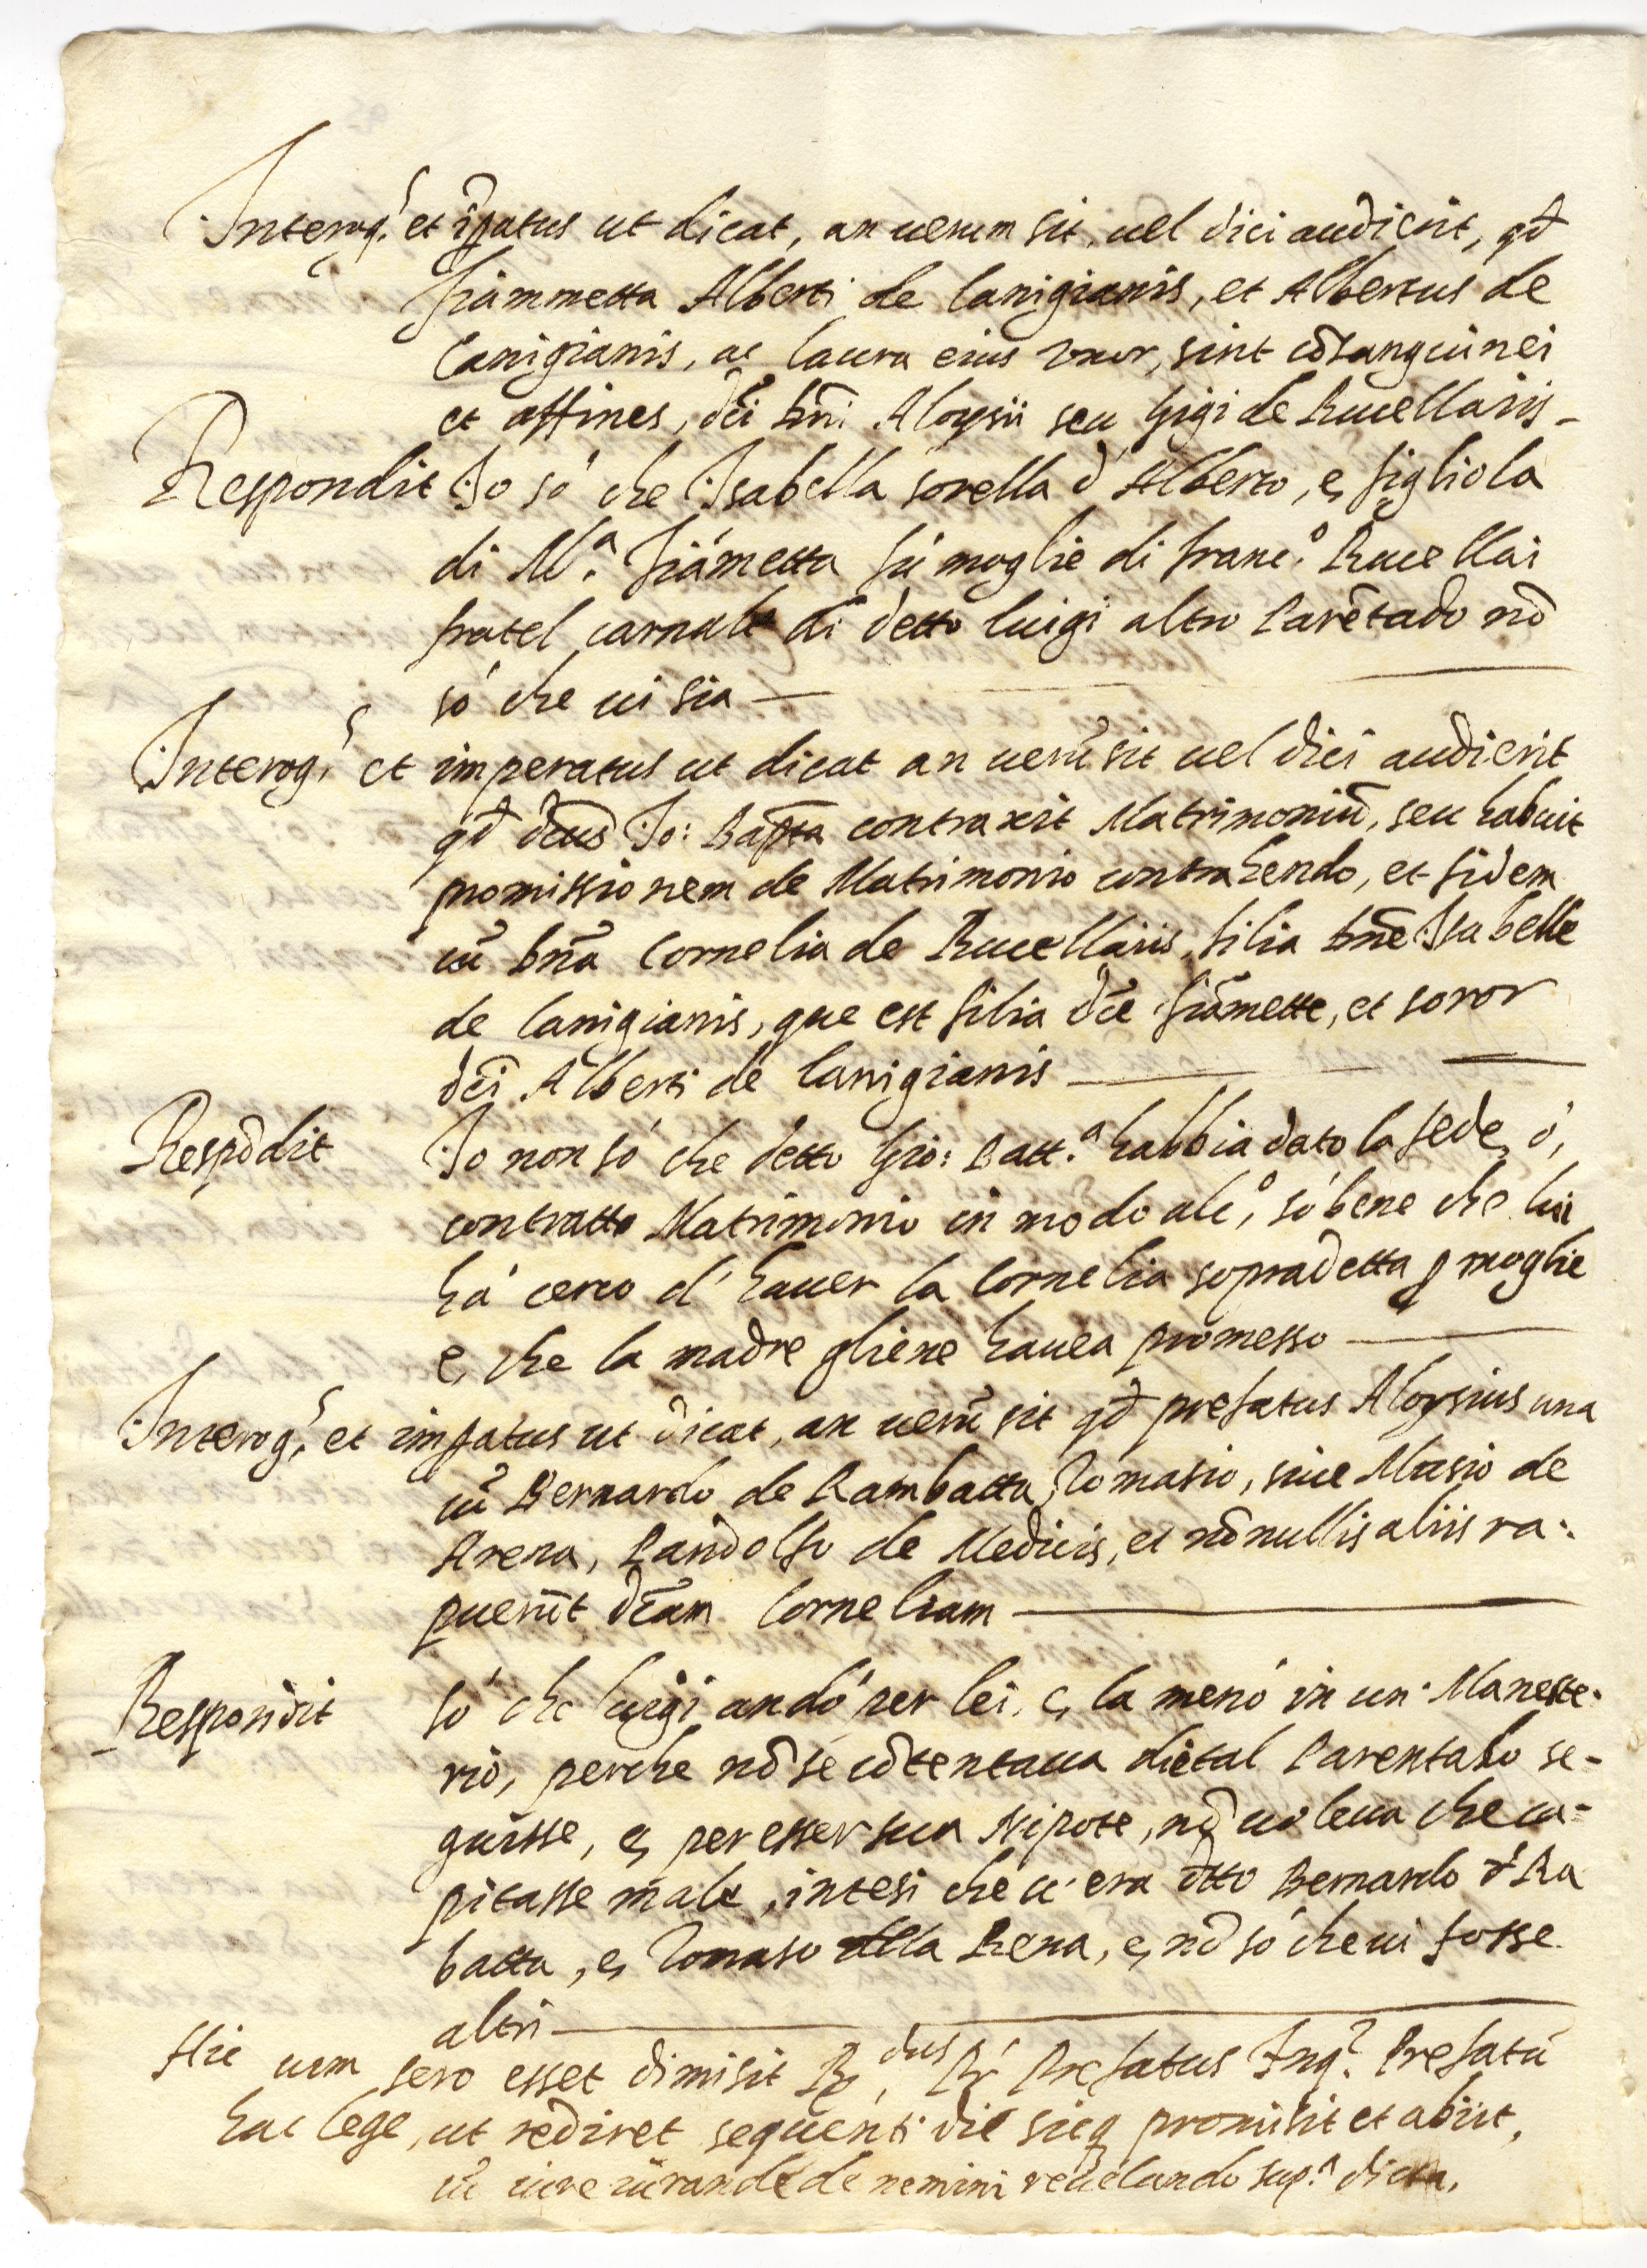 Interog.s et īp̄atus ut dicat, an uerum sit, uel dici audierit, qđ
fiammetta Alberti de Canigianis, et Albertus de
Canigianis, ac Laura eius uxor, sint cōsanguinei
et affines, dc̄i Dn̄i Aloysii seu Gigi de Rucellaiis -
Respondit Io só che Isabella sorella d'Alberto, e, figliola
di M.a fiāmetta fú moglie di franc.o Rucellai
fratel carnale di detto luigi altro Parētado nō
só che ui sia —
Interog.s et imperatus ut dicat an uerū sit uel dici audierit
qđ dc̄us Io: Bap̄ta contraxit Matrimoniū, seu habuit
promissionem de Matrimonio contrahendo, et fidem
cū Dn̄a Cornelia de Rucellaiis, filia Dn̄e Isabelle
de Canigianis, que est filia dc̄e fiāmette, et soror
dc̄i Alberti de Canigianis —
Respōdit Io non só che detto Gio: Batt.a habbia dato la fede, ó,
contratto Matrimonio in modo alc.o, só bene che lui
há cerco d'hauer la Cornelia sopradetta ꝑ moglie
e, che la madre gliene hauea promesso —
Interog.s et imꝑatus ut dicat, an uerū sit qđ prefatus Aloysius una
cū Bernardo de Rambatta, Tomasio, siue Masio de
Arena, Pandolfo de Medicis, et nōnullis aliis ra:
puerūt dc̄am Corneliam —
Respondit só che luigi andó per lei, e, la menó in un Maneste.
rio, perche nō se cōtentaua che tal Parentado se-
guisse, e, per esser sua Nipote, nō uoleua che ca-
pitasse male, intesi che u'era dtto Bernardo d'Ra
batta, e, Tomaso della Rena, e, nō só che ui fosse
altri —
Hic cum sero esset dimisit R.dus P.r Prefatus Inq.r Prefatū
hac lege, ut rediret sequenti die sicq promisit et abiit,
cū iure iurando de nemini reuelando sup.a dicta.